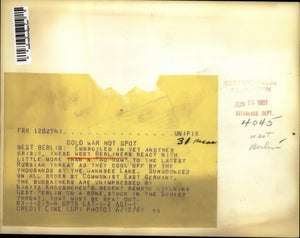 FRK 1282741.
UNIPIX
COLD WAR HOT SPOT
WEST BERLIN: EMBROILED IN YET ANOTHER
CRISIS, THESE WEST BERLINERS REACT WITH
LITTLE MORE THAN A "HO-HUM" TO THE LATEST
RUSSIAN THREAT AS THEY COOL OFF BY THE
THOUSANDS AT THE WANNSEE LAKE. SURROUNDED
ON ALL SIDES BY COMMUNIST EAST GERMANY,
THE SUNBATHERS ARE UNIMPRESSED BY
NIKITA KHRUSHCHEV'S RECENT REMARK LIKENING
WEST BERLIN TO A BONE, STUCK IN THE SOVIET
THROAT, THAT MUST BE SPAT OUT.
CREDIT LINE (UPI PHOTO) 6/12/61
JUN 15 1961
REFERENCE DEPT.
4045
West
Berlin